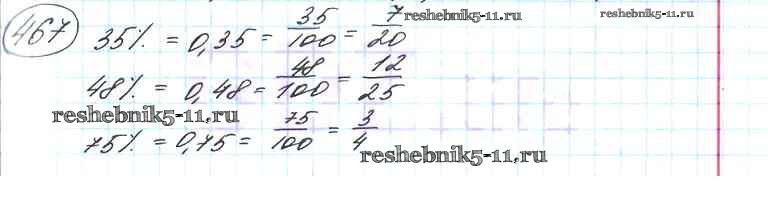 467 35% = 0,35 = 35/100 = 7/20 reshebnik5-11.ru reshebnik5-11.ru
48% = 0,48 = 48/100 = 12/25
reshebnik5-11.ru
75% = 0,75 = 75/100 = 3/4
reshebnik5-11.ru